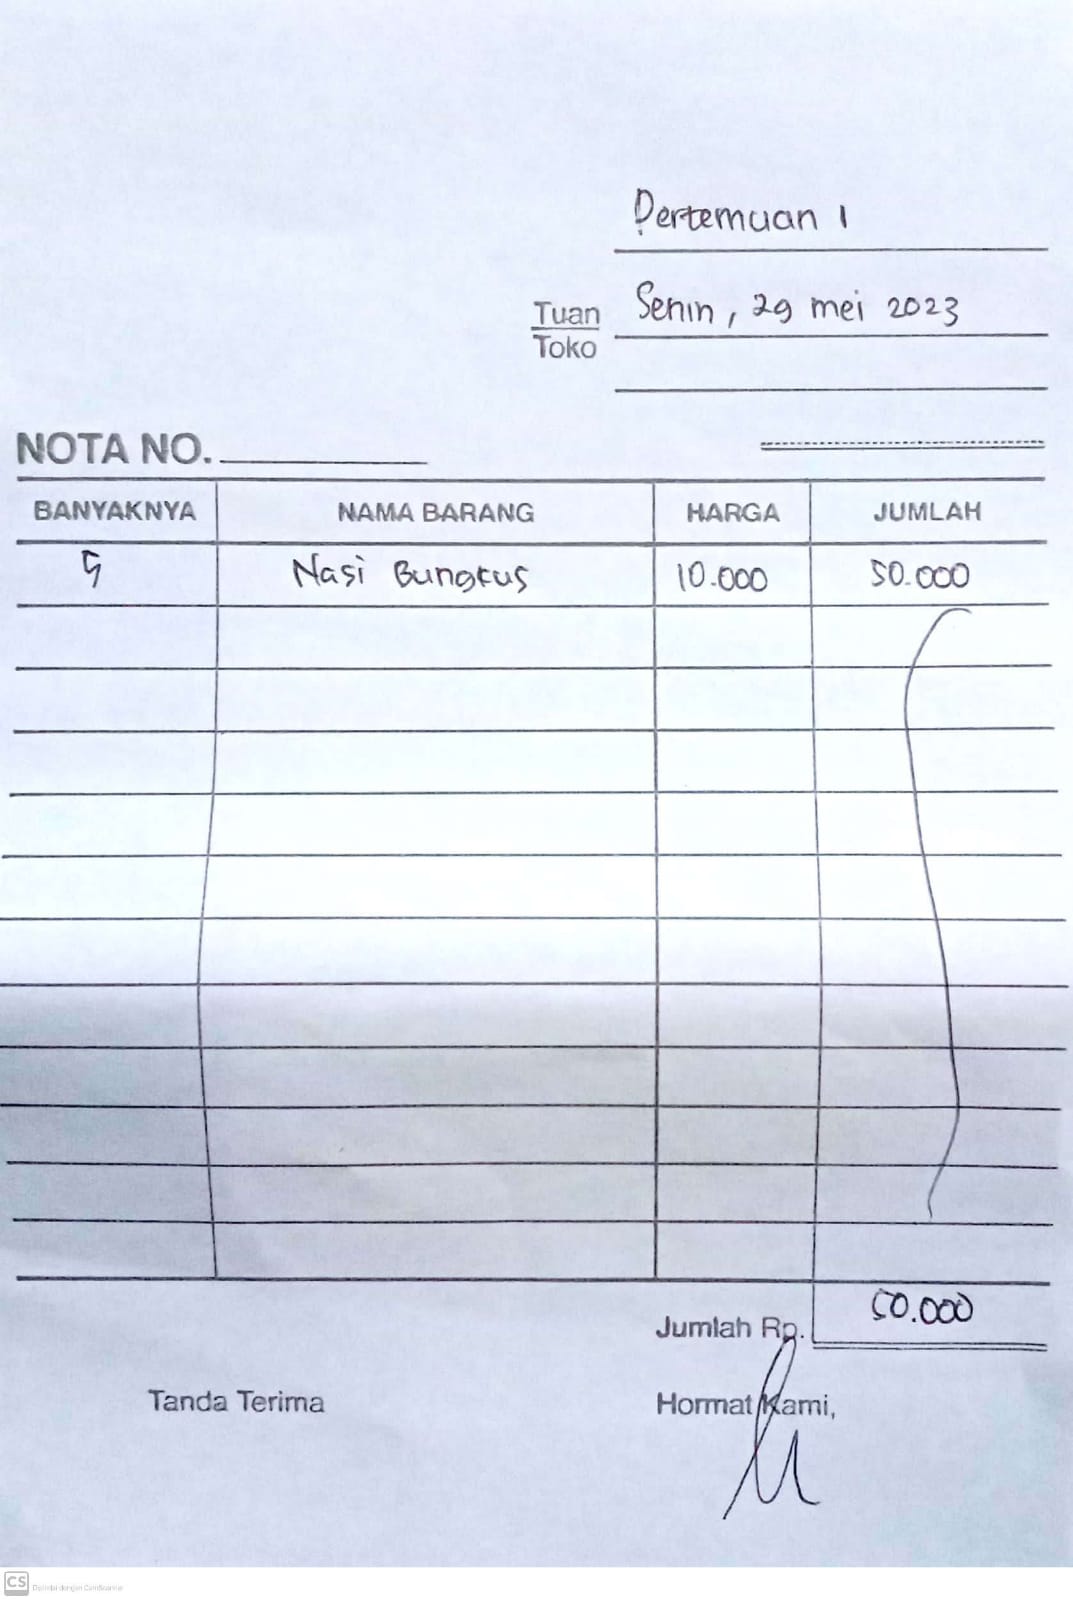 Pertemuan 1
Tuan Senin, 29 mei 2023
Toko
NOTA NO.
BANYAKNYA NAMA BARANG HARGA JUMLAH
5 Nasi Bungkus 10.000 50.000
Jumlah Rp. 50.000
Tanda Terima Hormat Kami,
CS Dipindai dengan CamScanner